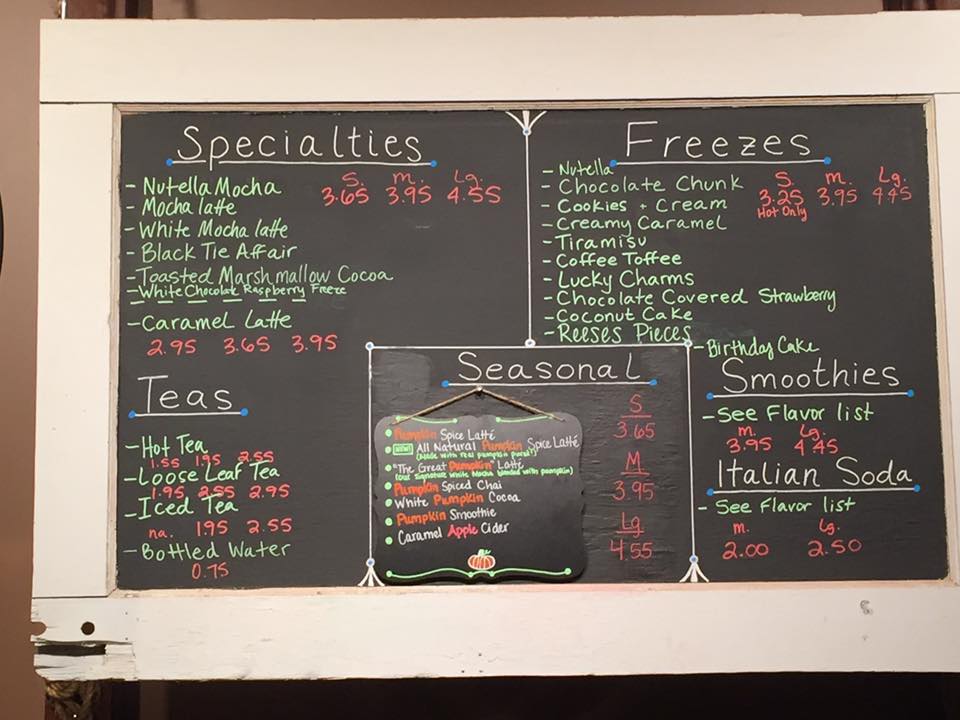 Specialties
- Nutella Mocha S. m. Lg.
3.65 3.95 4.55
- Mocha latte
- White Mocha latte
- Black Tie Affair
- Toasted Marshmallow Cocoa
- White Chocolate Raspberry Freeze
- Caramel Latte
2.95 3.65 3.95
Teas
- Hot Tea
1.55 1.95 2.55
- Loose Leaf Tea
1.95 2.55 2.95
- Iced Tea
na. 1.95 2.55
- Bottled Water
0.75
Freezes
- Nutella
- Chocolate Chunk S. m. Lg.
3.25 3.95 4.45
Hot Only
- Cookies + Cream
- Creamy Caramel
- Tiramisu
- Coffee Toffee
- Lucky Charms
- Chocolate Covered Strawberry
- Coconut Cake
- Reeses Pieces
- Birthday Cake
Seasonal
Pumpkin Spice Latté
NEW! All Natural Pumpkin Spice Latté
(Made with real pumpkin puree!)
"The Great Pumpkin" Latté
(our signature white Mocha blended with pumpkin)
Pumpkin Spiced Chai
White Pumpkin Cocoa
Pumpkin Smoothie
Caramel Apple Cider
S
3.65
M
3.95
Lg
4.55
Smoothies
- See Flavor list
m. Lg.
3.95 4.45
Italian Soda
- See Flavor list
m. Lg.
2.00 2.50